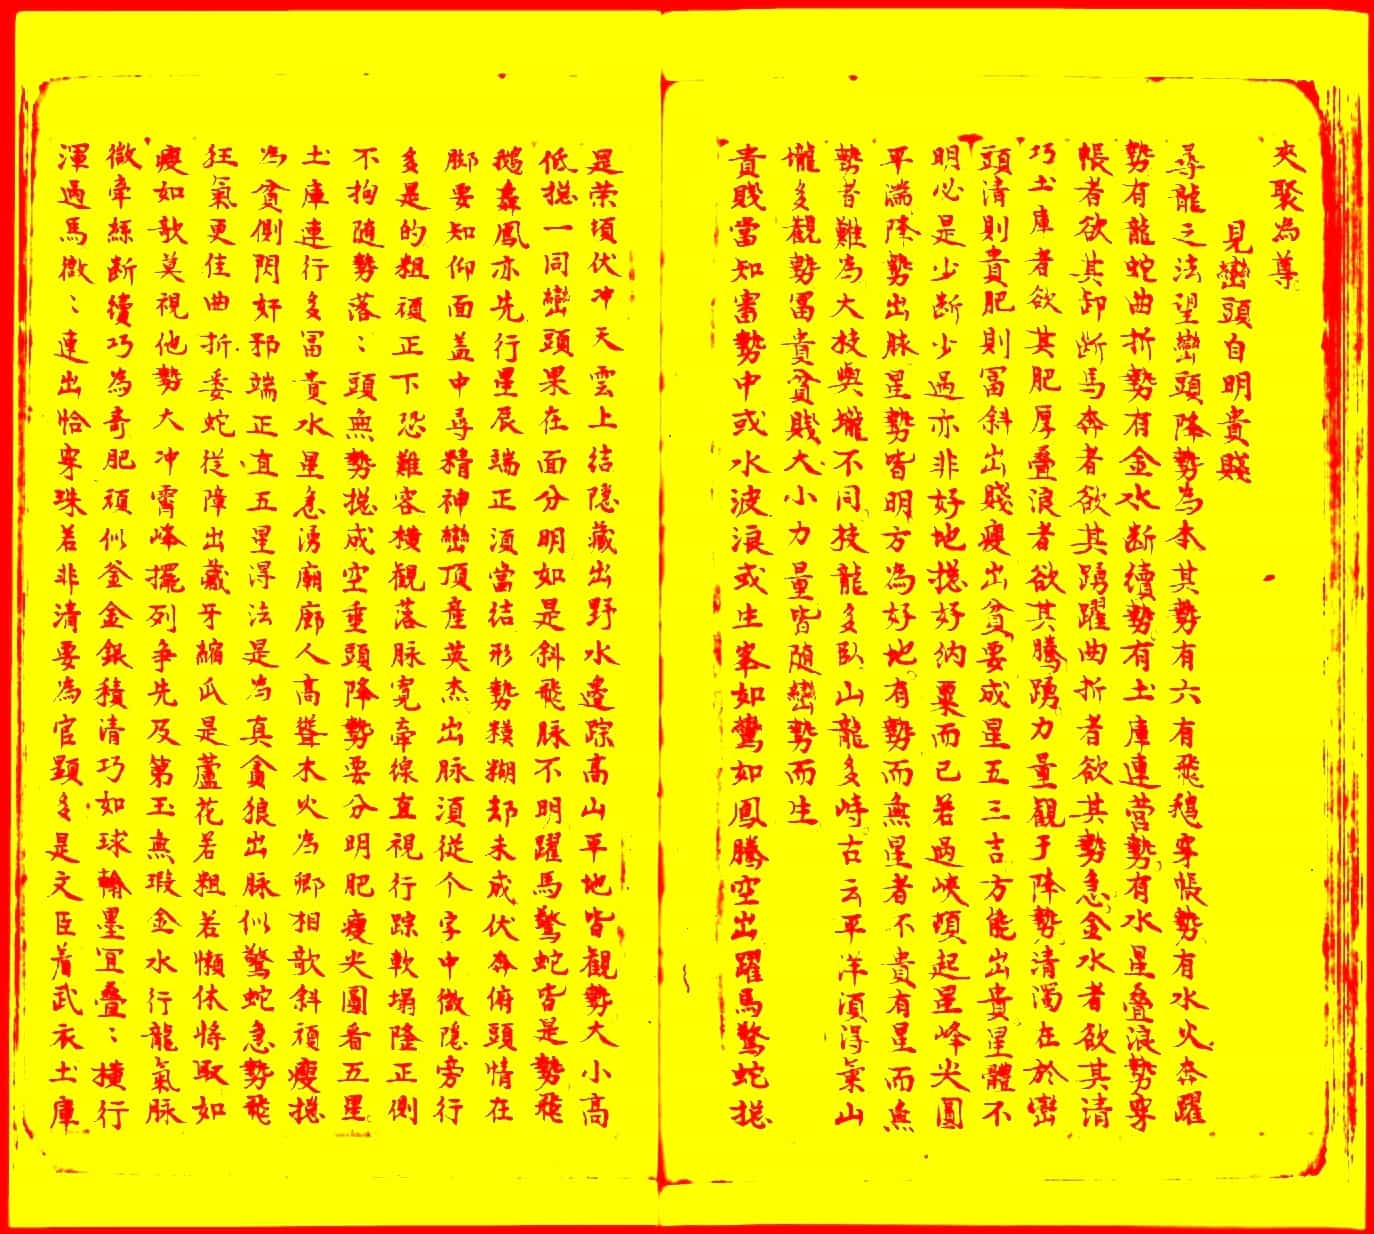 夾聚為尊
見巒頭自明貴賤
尋龍之法望巒頭降勢為本其勢有六有飛鵝穿帳勢有水火奔躍
勢有龍蛇曲折勢有金水斷續勢有土庫連營勢有水星叠浪勢穿
帳者欲其卸断馬奔者欲其踴躍曲折者欲其勢急金水者欲其清
巧土庫者欲其肥厚叠浪者欲其騰踴力量觀于降勢清濁在於巒
頭清則貴肥則冨斜出賤瘦出貧要成星五三吉方能出貴星體不
明必是少断少過亦非好地揔好納粟而已若過峽頓起星峰尖圓
平端降勢出脉星勢皆明方為好地有勢而無星者不貴有星而無
勢者難為大技與壠不同技龍多臥山龍多峙古云平洋湏淂氣山
壠多觀勢冨貴貧賤大小力量皆随巒勢而生
貴賤當知審勢中或水波浪或生峯如鸞如鳳騰空出躍馬驚蛇揔
是荣頃伏冲天雲上结隠藏出野水邉踪高山平地皆觀勢大小高
低揔一同巒頭果在面分明如是斜飛脉不明躍馬驚蛇皆是勢飛
鵝舞鳳亦先行星辰端正湏當结形勢糢糊却未成伏奔俯頭情在
脚要知仰面盖中尋精神巒頂產英杰出脉湏従个字中微隠旁行
多是的粗頑正下恐難容横觀落脉寛牽線直視行踪軟塌隆正側
不拘随勢落：頭無勢揔成空垂頭降勢要分明肥瘦尖圓看五星
土庫連行多冨貴水星急湧廟廊人高聳木火為卿相歌斜頑瘦揔
為貧側閃奸邪端正宜五星淂法是為真貪狼出脉似驚蛇急勢飛
狂氣更佳曲折委蛇従障出藏牙縮爪是蘆花若粗若懶休將取如
瘦如歌莫視他勢大冲霄峰擺列争先及第玉無瑕金水行龍氣脉
微牽絲断續巧為奇肥頑似釜金銀積清巧如球翰墨冝叠：横行
渾過馬微：連出恰穿珠若非清要為官顕多是文臣着武衣土庫